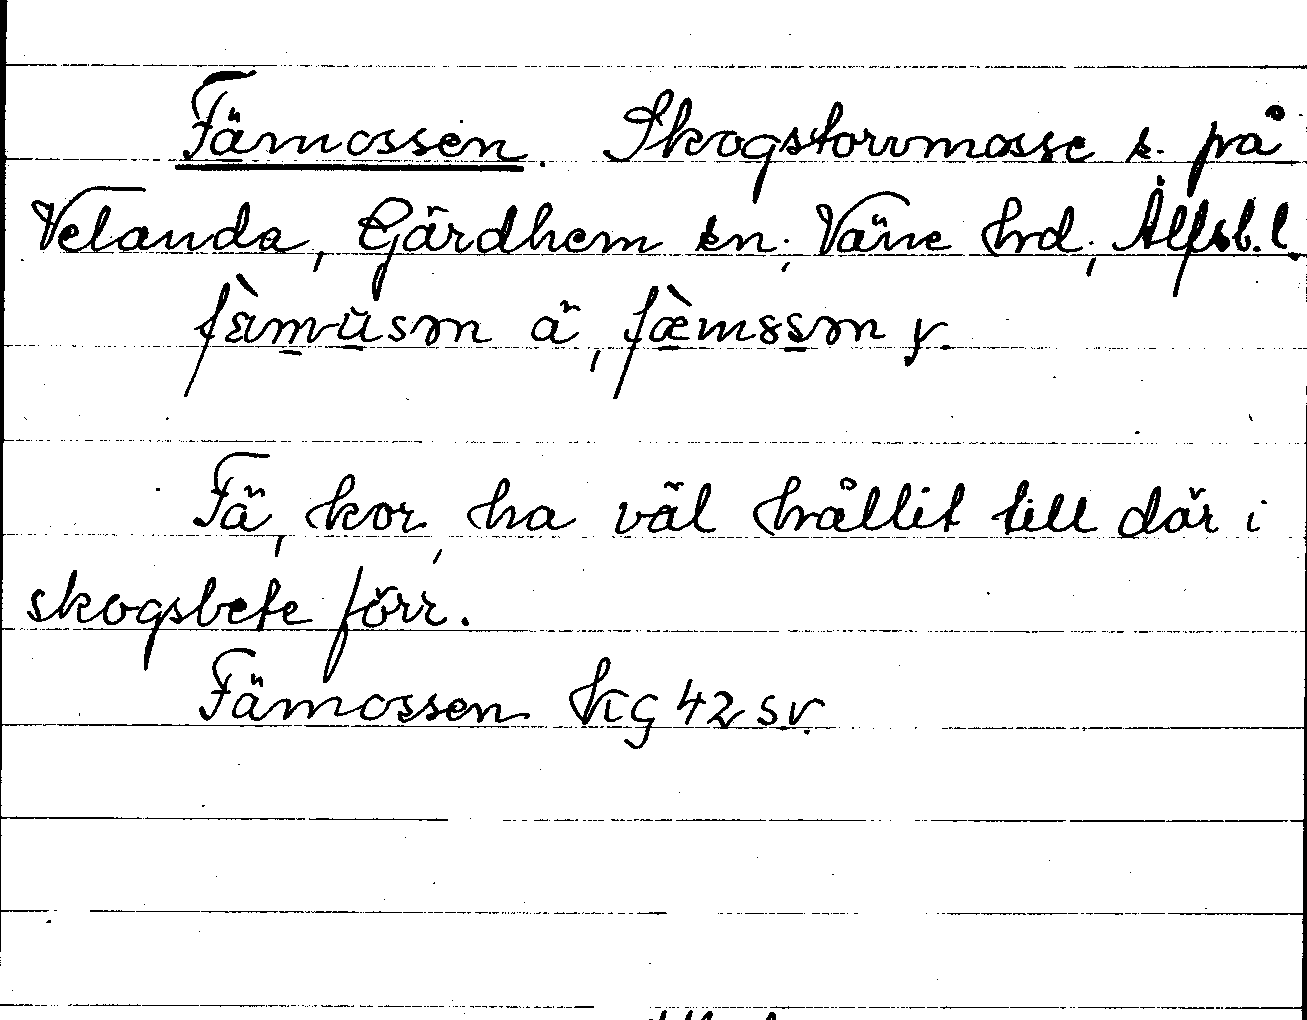 Fämossen. Skogstorvmosse s. på
Velanda, Gärdhem sn, Väne hrd, Älfsb. l.
ä, y.
Fä, kor, ha väl hållit till där i
skogsbete förr.
Fämossen kg 42 sv.